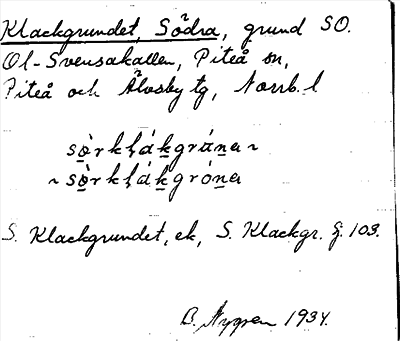 Klackgrundet, Södra, grund SO.
Ol-Svensakallen, Piteå sn,
Piteå och Älvsby tg, Norrb. l
sò̱rkḷák̲gráṉa ~
~ sò̱rkḷák̲gróṉa
S. Klackgrundet, ek, S. Klackgr. G: 103.
B. Nygren 1934.